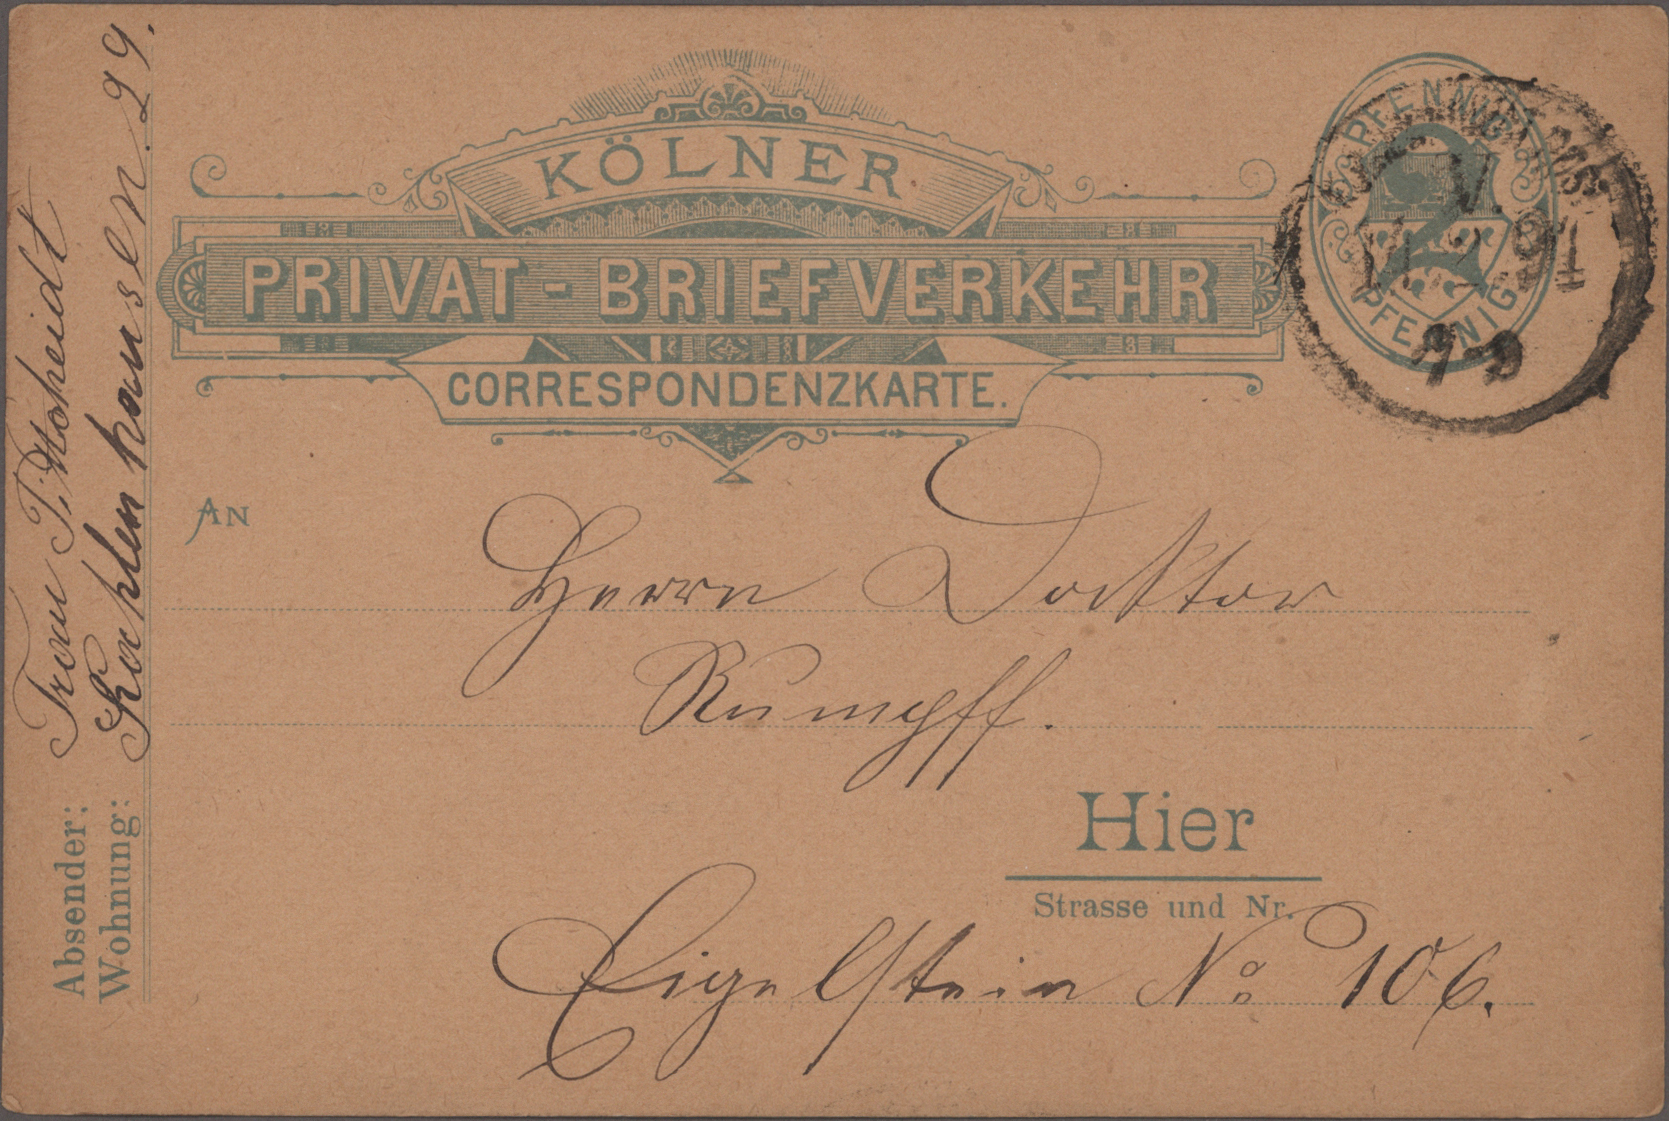 KÖLNER
PRIVAT-BRIEFVERKEHR
CORRESPONDENZKARTE.
PFENNIG
2
PFENNIG
V.
14.2.91
AN
Herrn Docktor
Rumpff.
Hier
Strasse und Nr.
Eigelstein No 106.
Absender: Frau
Wohnung: 29.